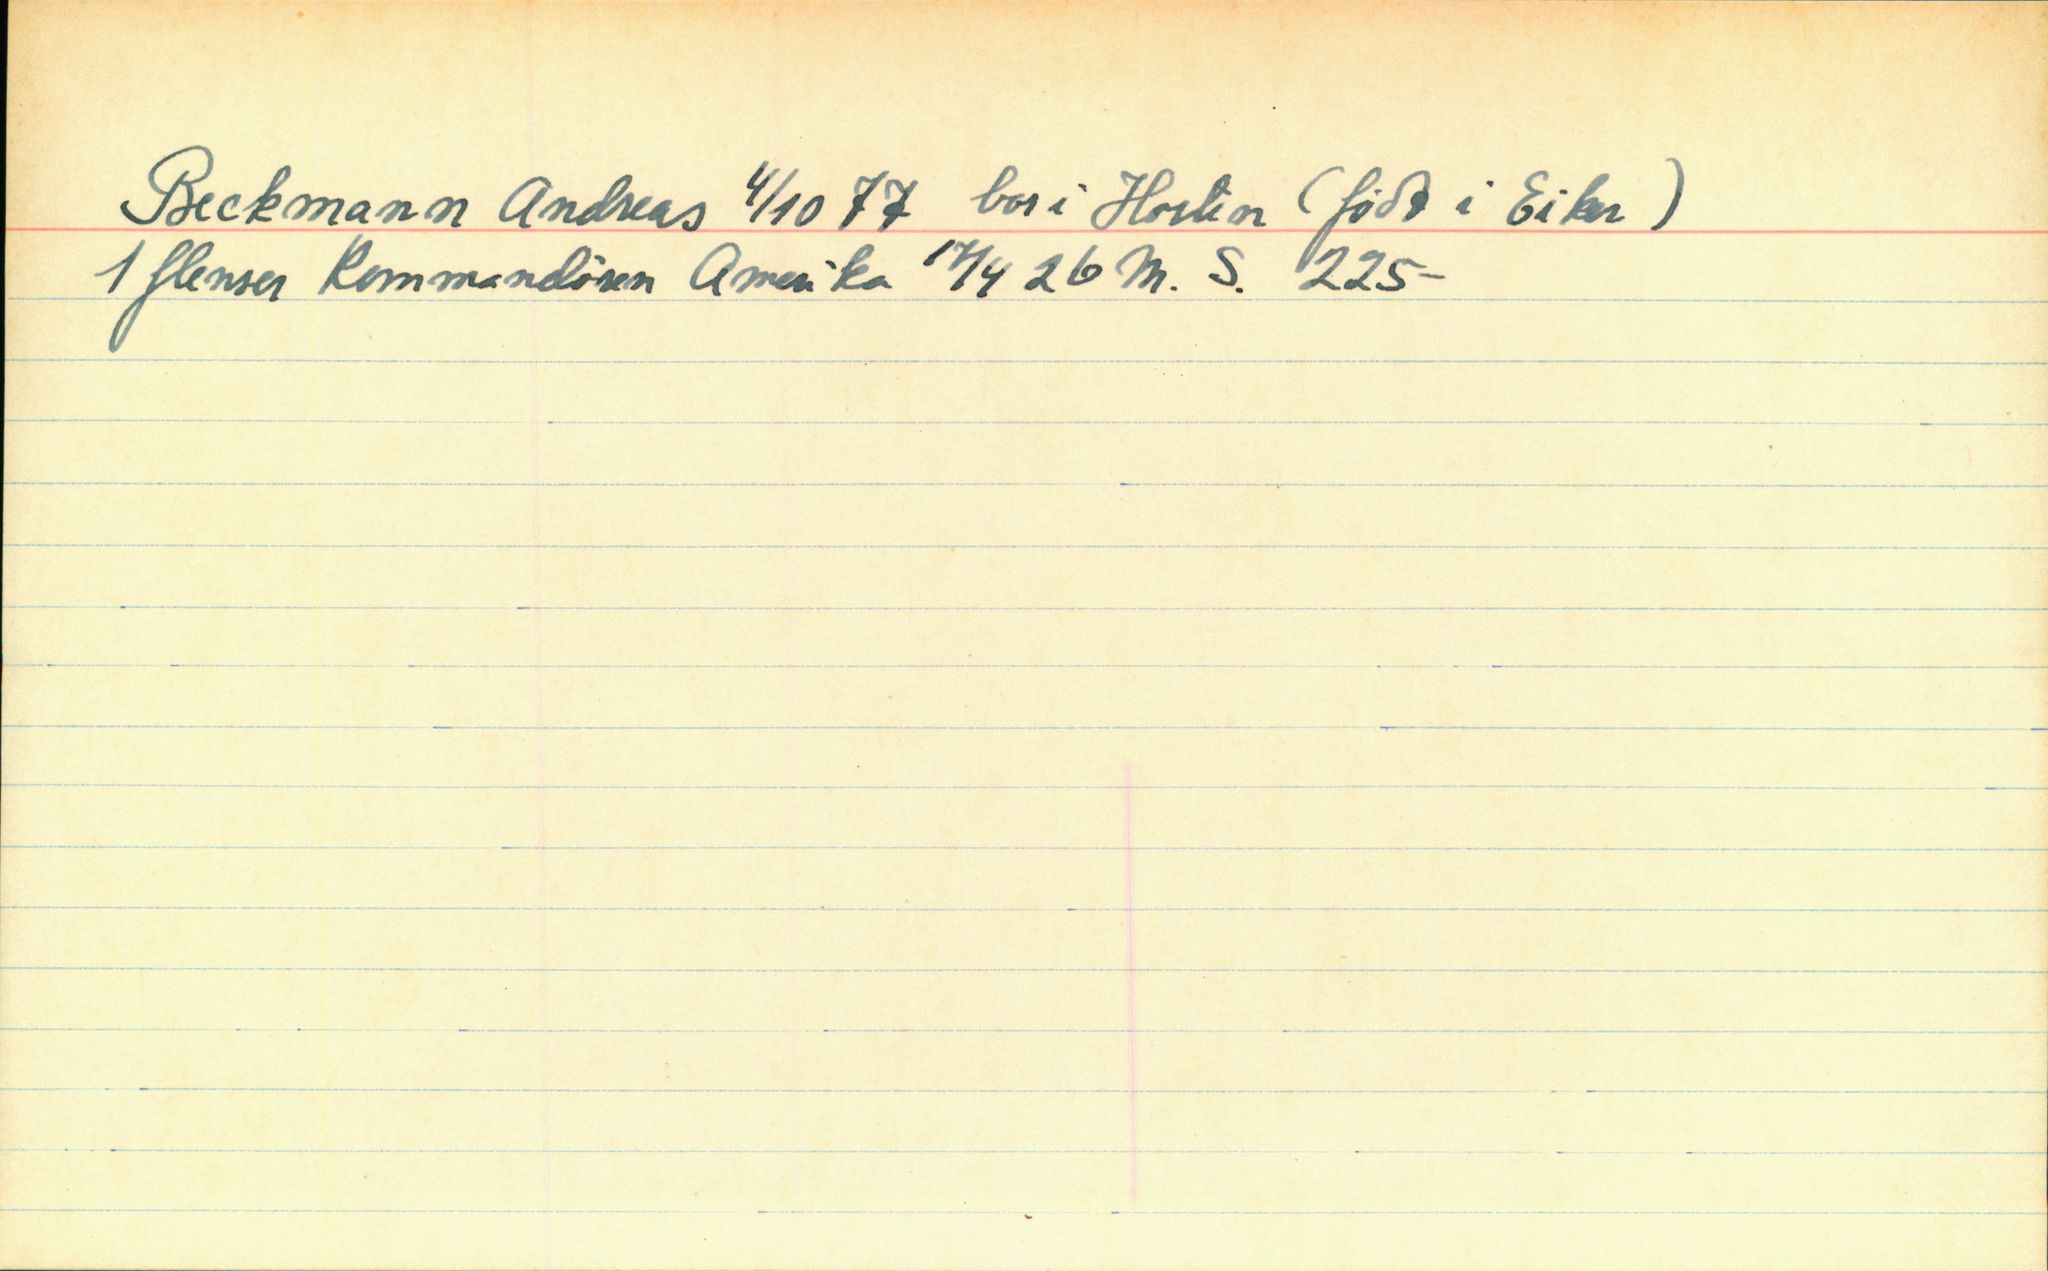 Beckmann Andreas 4/10 77 bor i Horten (født i Eiker)
1 flenser Kommandören Amerika 17/4 26 M. S. 225-